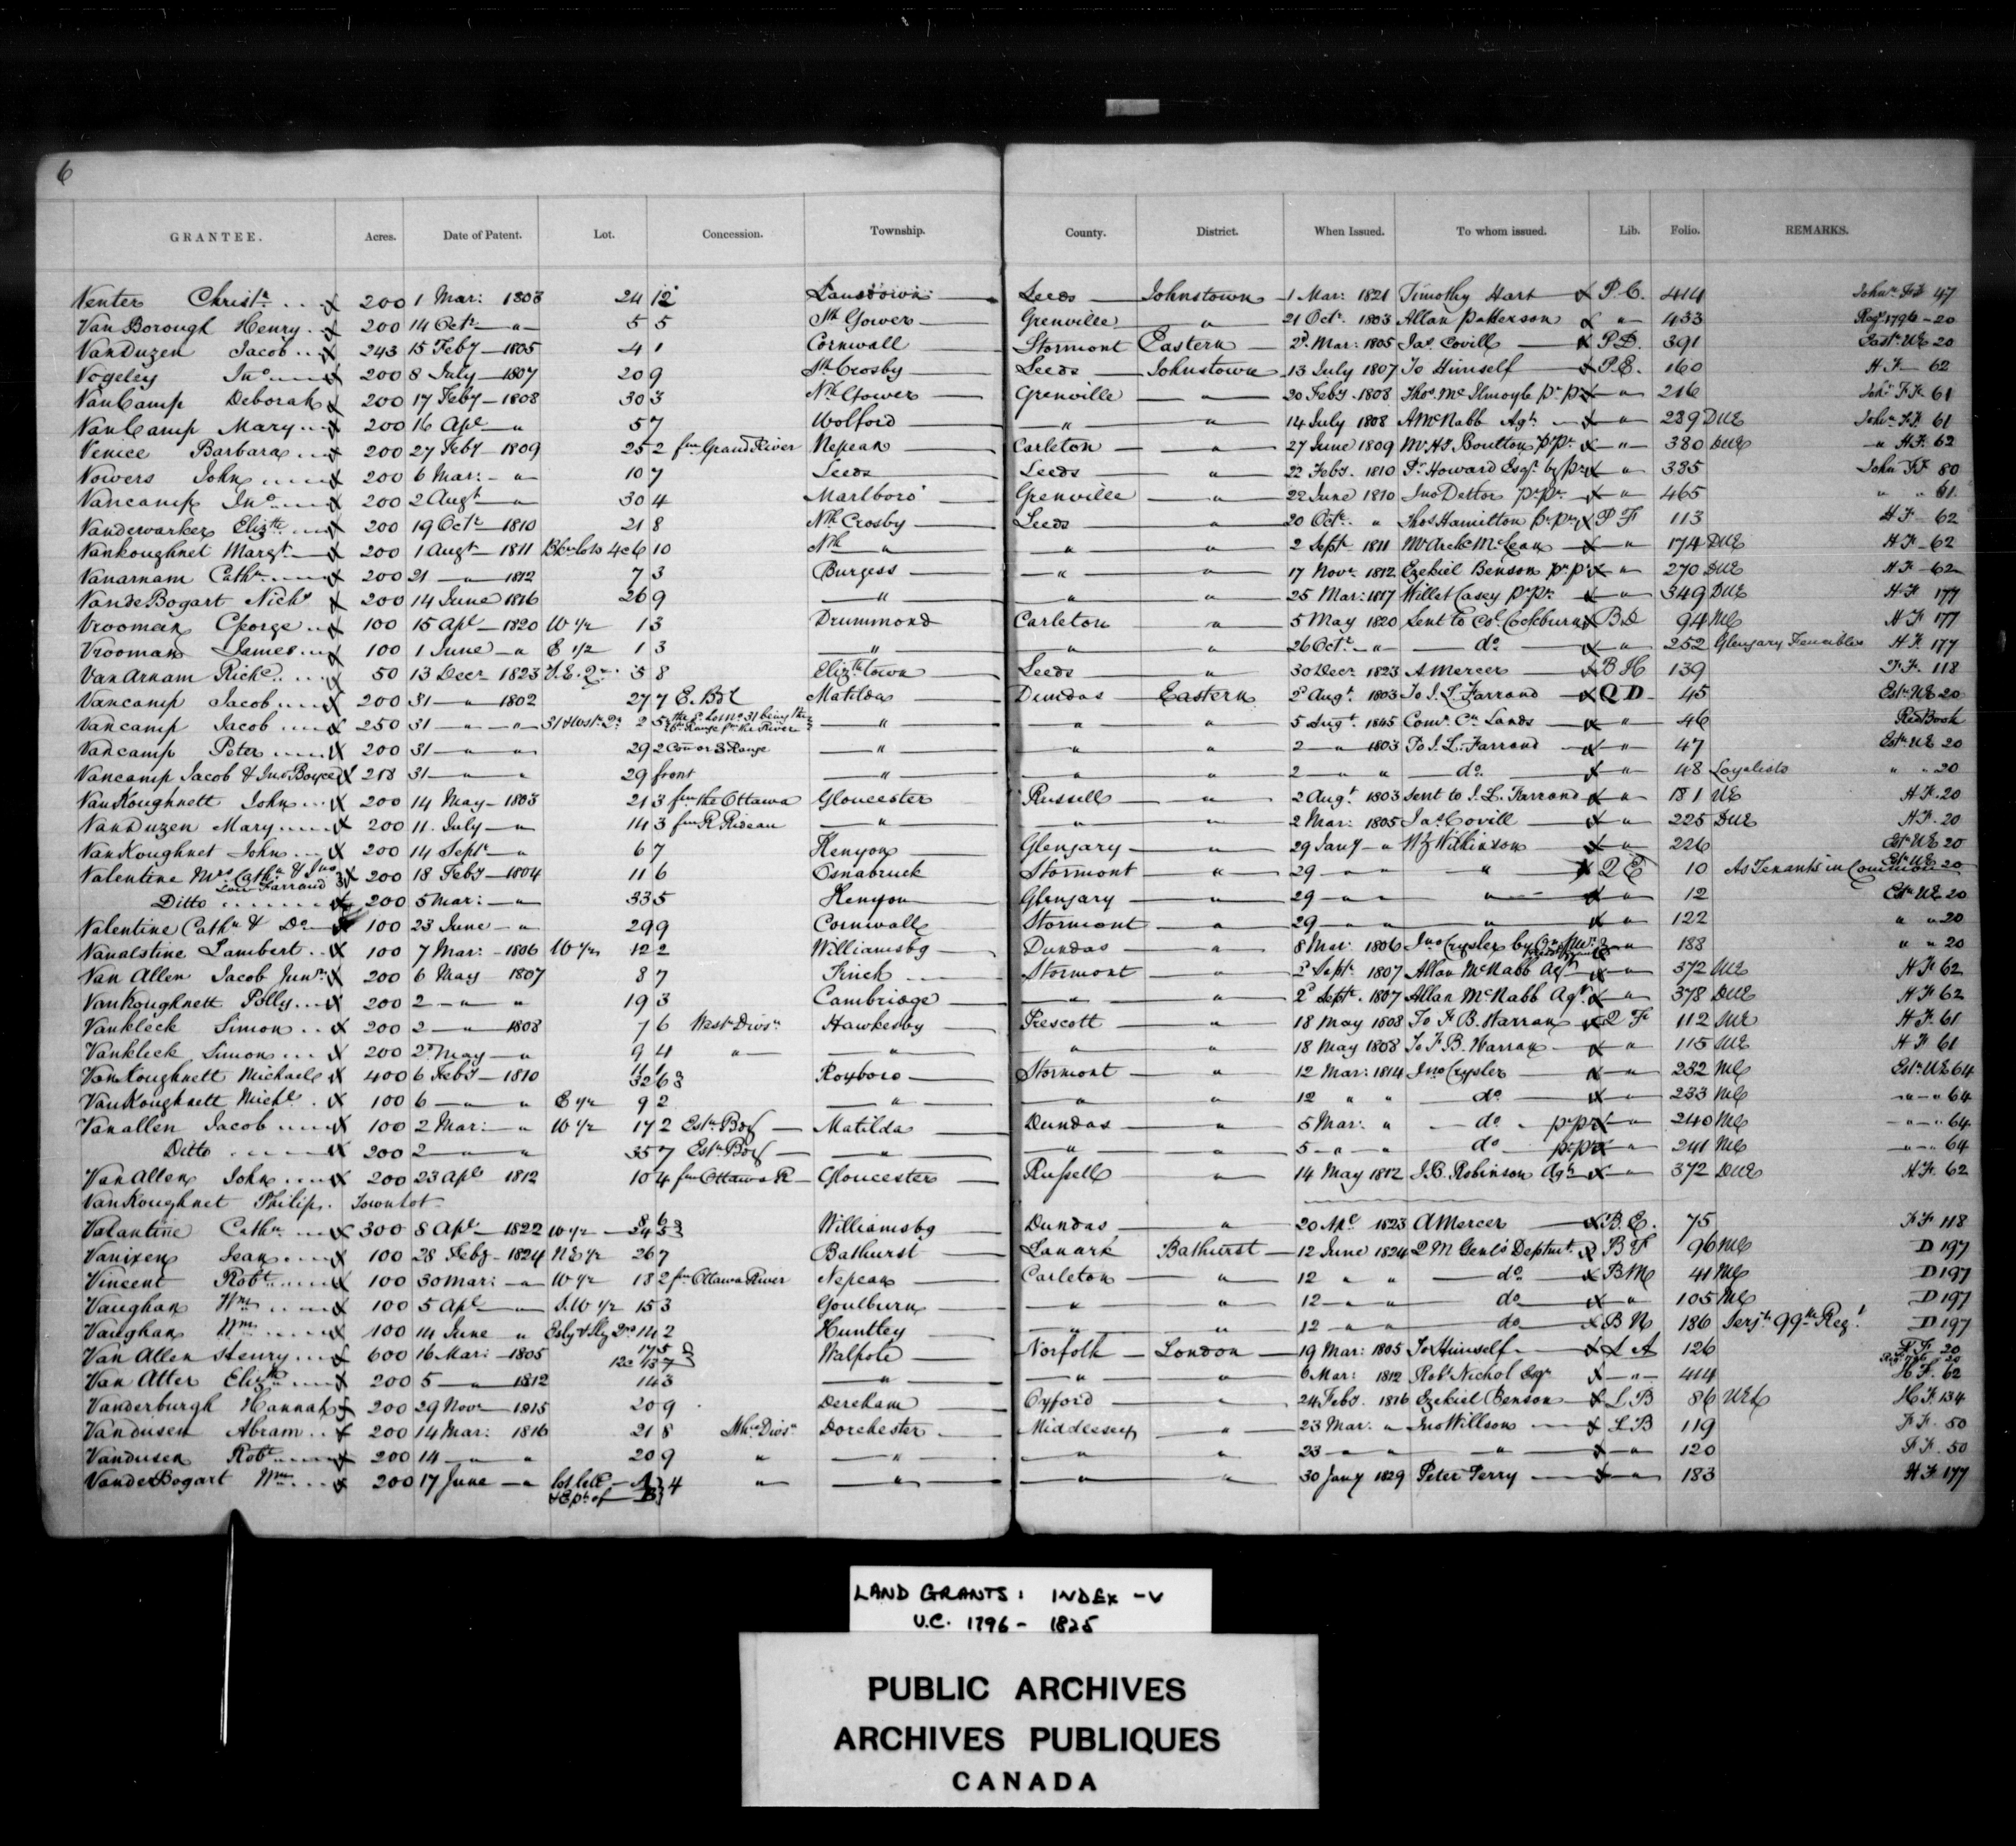 6
GRANTEE. Acres. Date of Patent. Lot. Concession. Township. County. District. When Issued. To whom issued. Lib. Folio. REMARKS.
Venter Christr 200 1 Mar: 1803 24 12 Lansdown Leeds Johnstown 1 Mar: 1821 Timothy Hart P.C. 414 47
Van Borough Henry 200 14 Octr " 5 5 Sth Gower Grenville " 21 Octr 1803 Allan Patterson " 433 Regr 1796 - 20
VanDuzen Jacob 243 15 Feby 1805 4 1 Cornwall Stormont Eastern 2d Mar: 1805 Jas Covill P.D. 391 Eastn UE 20
Vogeley Jno 200 8 July 1807 20 9 Sth Crosby Leeds Johnstown 13 July 1807 To Himself P.E. 160 H F 62
VanCamp Deborah 200 17 Feby 1808 30 3 Nth Gower Grenville " 20 Feby 1808 Thos McIlmoyle pr pr " 216 61
VanCamp Mary 200 16 Apl " 5 7 Wolford " " 14 July 1808 A McNabb Agt " 239 DUE 61
Venice Barbara 200 27 Feby 1809 25 2 fm Grand River Nepean Carleton " 27 June 1809 Boulton pr pr " 380 DUE " H F 62
Vowers John 200 6 Mar: " 10 7 Leeds Leeds " 22 Feby 1810 Howard Esqr by pr " 385 John FF 80
Vancamp Jno 200 2 Augt " 30 4 Marlboro' Grenville " 22 June 1810 Jno Dettor pr pr " 465 " " 61
Vanderwarker Elizth 200 19 Octr 1810 21 8 Nth Crosby Leeds " 20 Octr " Thos Hamilton pr pr P F 113 H F 62
Vankoughnet Margt 200 1 Augt 1811 Bkn lots 4 & 6 10 Nth " " " 2 Sept 1811 McLean " 174 DUE H F 62
Vanarnam Cathr 200 21 " 1812 7 3 Burgess " " 17 Novr 1812 Ezekiel Benson pr pr " 270 DUE H F 62
VandeBogart Nichs 200 14 June 1816 26 9 " " " 25 Mar: 1817 Willet Casey pr pr " 349 DUE H F 177
Vrooman George 100 15 Apl 1820 W 1/2 1 3 Drummond Carleton " 5 May 1820 Sent to Col Cockburn B D 94 MC H F 177
Vrooman James 100 1 June " E 1/2 1 3 " " " 26 Octr " do " 252 Glengary Fencibles H F 177
VanArnam Richd 50 13 Decr 1823 5 8 Elizth town Leeds " 30 Decr 1823 A Mercer B H 139 F F 118
Vancamp Jacob 200 31 " 1802 27 7 Matilda Dundas Eastern 2d Augt 1803 To J. L. Farrand Q D 45 Estn UE 20
Vancamp Jacob 250 31 " " 2 5 " " " 5 Augt 1845 Comr Cn Lands " 46 Red Book
Vancamp Peter 200 31 " " 29 2 Con or 3 Range " " " 2 " 1803 To J. L. Farrand " 47 Estn UE 20
Vancamp Jacob & Jno Boyce 218 31 " " 29 front " " " 2 " " do " 48 Loyalists " " 20
VanKoughnett John 200 14 May 1803 21 3 fm the Ottawa Gloucester Russell " 2 Augt 1803 Sent to J. L. Farrand " 181 UE H F 20
VanDuzen Mary 200 11 July " 14 3 fm R Rideau " " " 2 Mar: 1805 Jas Covill " 225 DUE H F 20
VanKoughnet John 200 14 Septr " 6 7 Kenyon Glengary " 29 Jany " Wilkinson " 226 Estn UE 20
Valentine Mrs Cathn & Jno Farrand 200 18 Feby 1804 11 6 Osnabruck Stormont " 29 " " " Q E 10 As Tenants in Common Estn UE 20
Ditto 200 5 Mar: " 33 5 Kenyon Glengary " 29 " " " " 12 Estn UE 20
Valentine Cathn & Do 100 23 June " 29 9 Cornwall Stormont " 29 " " " " 122 " " 20
Vanalstine Lambert 100 7 Mar: 1806 W 1/2 12 2 Williamsbg Dundas " 8 Mar: 1806 Jno Crysler by " 188 " " 20
Van Allen Jacob Junr 200 6 May 1807 8 7 Finch Stormont " 2d Septr 1807 Allan McNabb Agt " 372 UE H F 62
VanKoughnett Polly 200 2 " " 19 3 Cambridge " " 2d Septr 1807 Allan McNabb Agt " 378 DUE H F 62
Vankleck Simon 200 2 " 1808 7 6 West Divsn Hawkesby Prescott " 18 May 1808 To F B. Warran Q F 112 H F 61
Vankleck Simon 200 2d May " 9 4 " " " " 18 May 1808 To F B. Warran " 115 H F 61
VanKoughnett Michael 400 6 Feby 1810 11 1 32 6 Roxboro Stormont " 12 Mar: 1814 Jno Crysler " 232 MC Estn UE 64
VanKoughnett Michl 100 6 " " E 1/2 9 2 " " " 12 " " do " 233 MC " " 64
Vanallen Jacob 100 2 Mar: " W 1/2 17 2 Matilda Dundas " 5 Mar: " do pr pr " 240 MC " " 64
Ditto 200 2 " " 35 7 " " " 5 " " do pr pr " 241 MC " " 64
VanAllen John 200 23 Apl 1812 10 4 fm Ottawa R Gloucester Russell " 14 May 1812 J. B. Robinson Agt " 372 DUE H F 62
VanKoughnet Philip. Town lot
Valantine Cathn 300 8 Apl 1822 W 1/2 8 6 24 5 Williamsbg Dundas " 20 Apl 1823 A Mercer B. E. 75 F F 118
Vanixen Jean 100 28 Feby 1824 N E 1/2 26 7 Bathurst Lanark Bathurst 12 June 1824 Q M Genl's Deptmt B F 96 MC D 197
Vincent Robt 100 30 Mar: " W 1/2 18 2 fm Ottawa River Nepean Carleton " 12 " " do B M 41 MC D 197
Vaughan Wm 100 5 Apl " S.W 1/2 15 3 Goulburn " " 12 " " do " 105 MC D 197
Vaughan Wm 100 14 June " 14 2 Huntley " " 12 " " do B N 186 Serjt 99th Regt D 197
Van Allen Henry 600 16 Mar: 1805 17 5 12 & 13 7 Walpole Norfolk London 19 Mar: 1805 To Himself L A 126 F F 20
Van Atter Elizth 200 5 " 1812 14 3 " " " 6 Mar: 1812 Robt Nichol Esqr " 414 H F 62
Vanderburgh Hannah 200 29 Novr 1815 20 9 Dereham Oxford " 24 Feby 1816 Ezekiel Benson L B 86 H F 134
Vandusen Abram 200 14 Mar: 1816 21 8 Nthn Divsn Dorchester Middlesex " 23 Mar: " Jno Willson L B 119 F F 50
Vandusen Robt 200 14 " " 20 9 " " " " 23 " " " " 120 F F 50
VanderBogart Wm 200 17 June " A B 4 " " " " 30 Jany 1829 Peter Perry " 183 H F 177
LAND GRANTS: INDEX - V
U.C. 1796 - 1825
PUBLIC ARCHIVES
ARCHIVES PUBLIQUES
CANADA